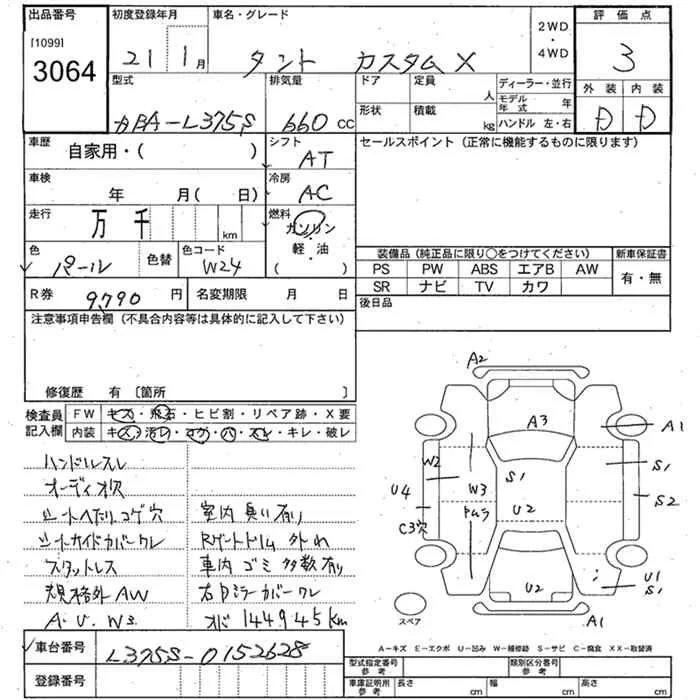 出品番号
[1099]
3064
初度登録年月
21 1月
車名・グレード
タント カスタム X
2WD
・
4WD
評価点
3
外装 内装
D D
型式
DBA-L375S
排気量
660 CC
ドア
定員
人
形状
積載
kg
ディーラー・並行
モデル年式 年
ハンドル 左・右
車歴
自家用・( )
シフト
AT
セールスポイント (正常に機能するものに限ります)
車検
年 月(日)
冷房
AC
走行
万 千 km
燃料
ガソリン
・
軽・油
( )
色
パール
色替
色コード
W24
装備品(純正品に限り○をつけてください)
新車保証書
PS PW ABS エアB AW
有・無
SR ナビ TV カワ
後日品
R券
9,790 円
名変期限 月 日
注意事項申告欄 (不具合内容等は具体的に記入して下さい)
修復歴 有 〔箇所 〕
検査員記入欄
FW キズ・飛石・ヒビ割・リペア跡・X要
内装 キズ・汚レ・コゲ・穴・スレ・キレ・破レ
ハンドルスレ
オーディオ欠
シートヘタリ、コゲ穴
室内 臭い有り
シートサイドカバーワレ
Rゲートトリム 外れ
スタットレス
車内 ゴミ 多数有り
規格外 AW
右Dミラーカバーワレ
A. U. W3
メーター 144945km
車台番号
L375S-0152628
登録番号
A2
A3
A1
W2
S1
S1
U4
W3
S2
C3穴
トムラ
U2
U2
U1
S1
スペア
A1
A-キズ E-エクボ U-凹み W-補修跡 S-サビ C-腐食 XX-取替済
型式指定番号
参考
類別区分番号
参考
車庫証明用
参考
長さ cm
幅 cm
高さ cm